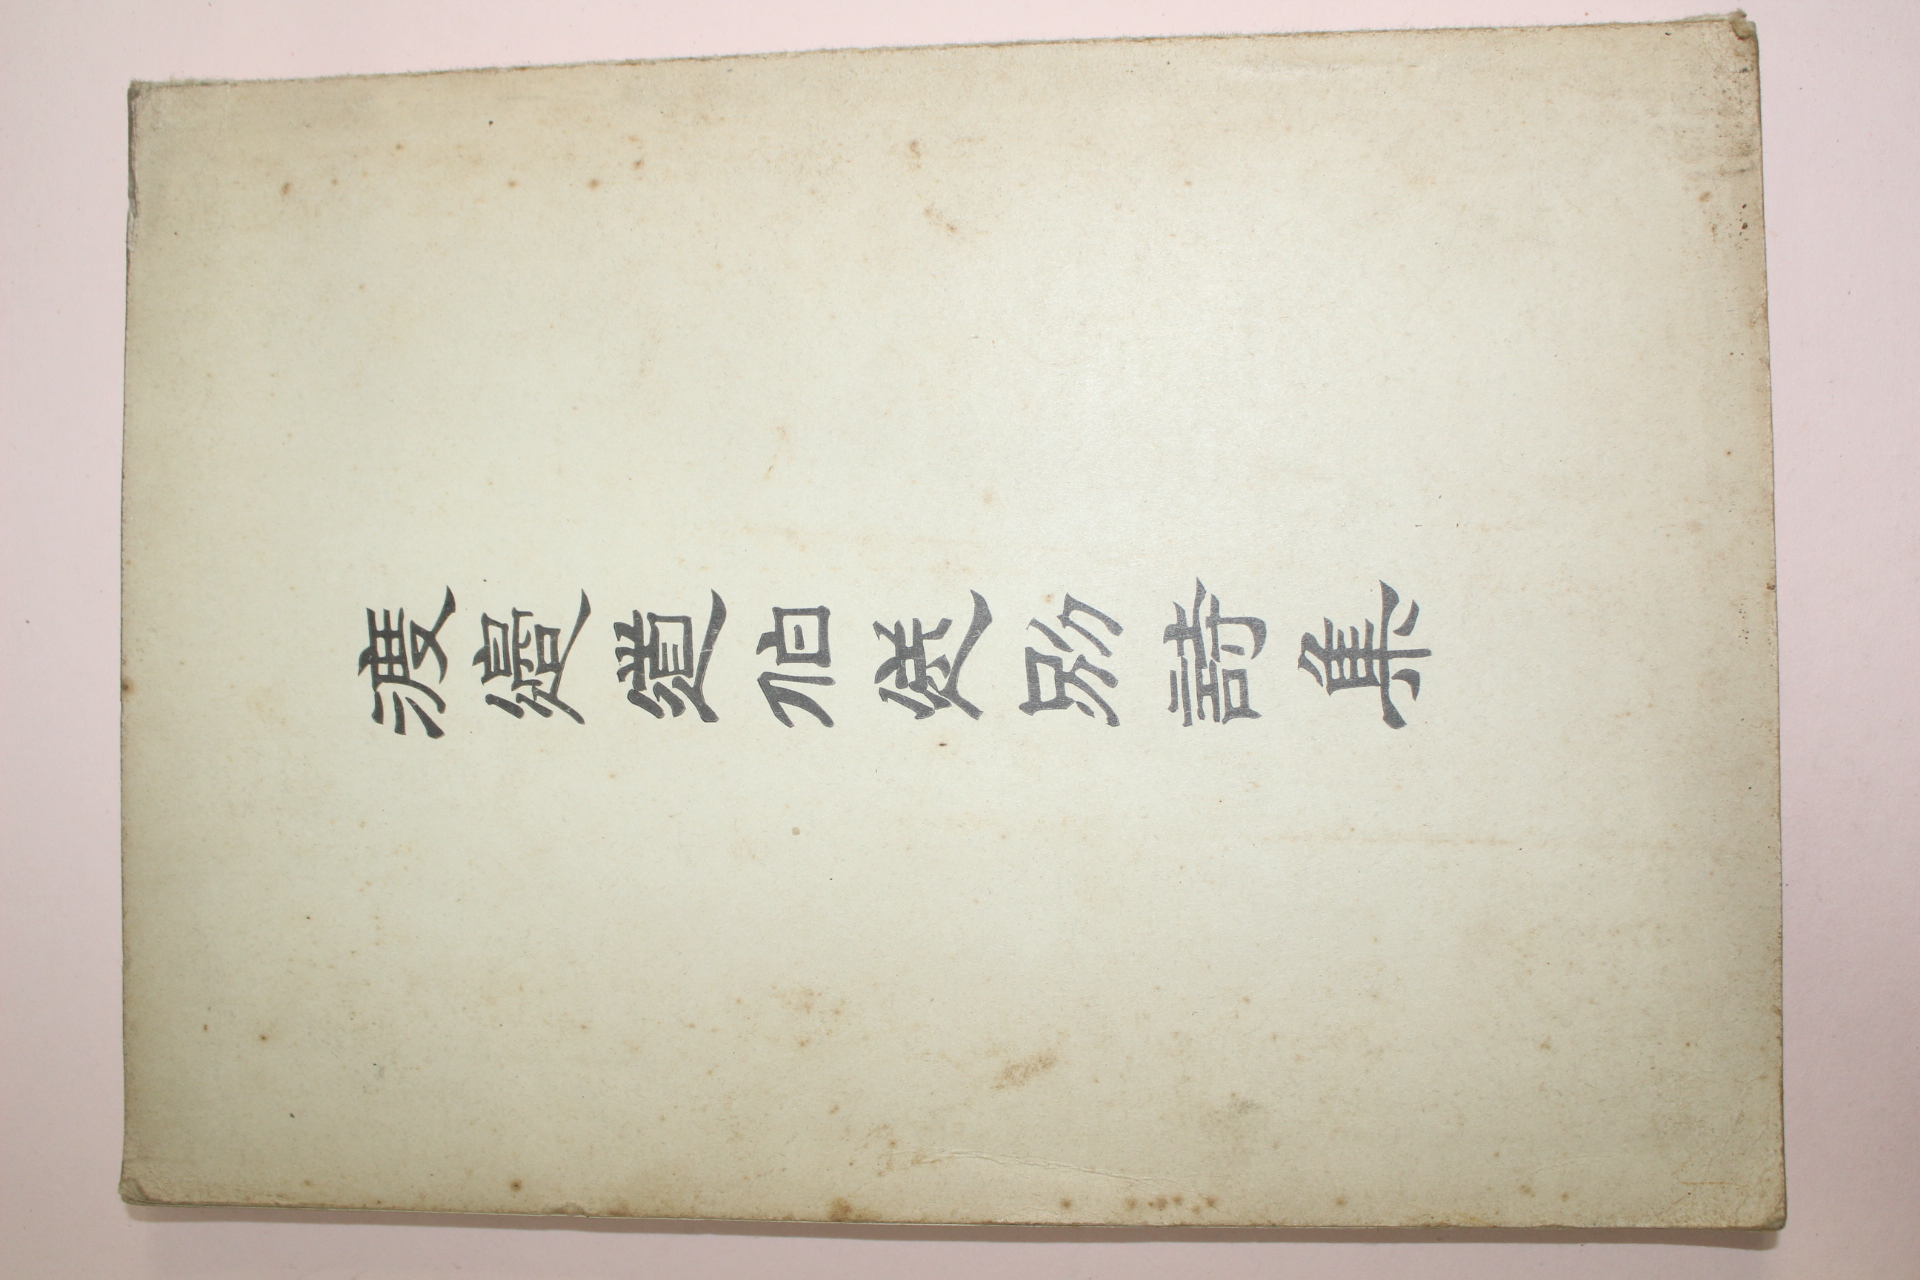 渡邊道伯送別詩集